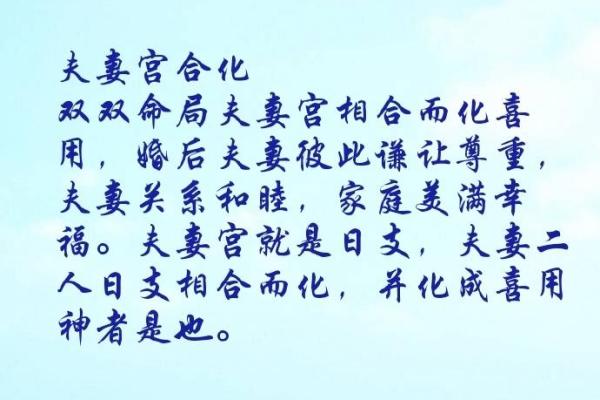 夫妻宫合化
双双命局夫妻宫相合而化喜
用，婚后夫妻彼此谦让尊重，
夫妻关系和睦，家庭美满幸
福。夫妻宫就是日支，夫妻二
人日支相合而化，并化成喜用
神者是也。